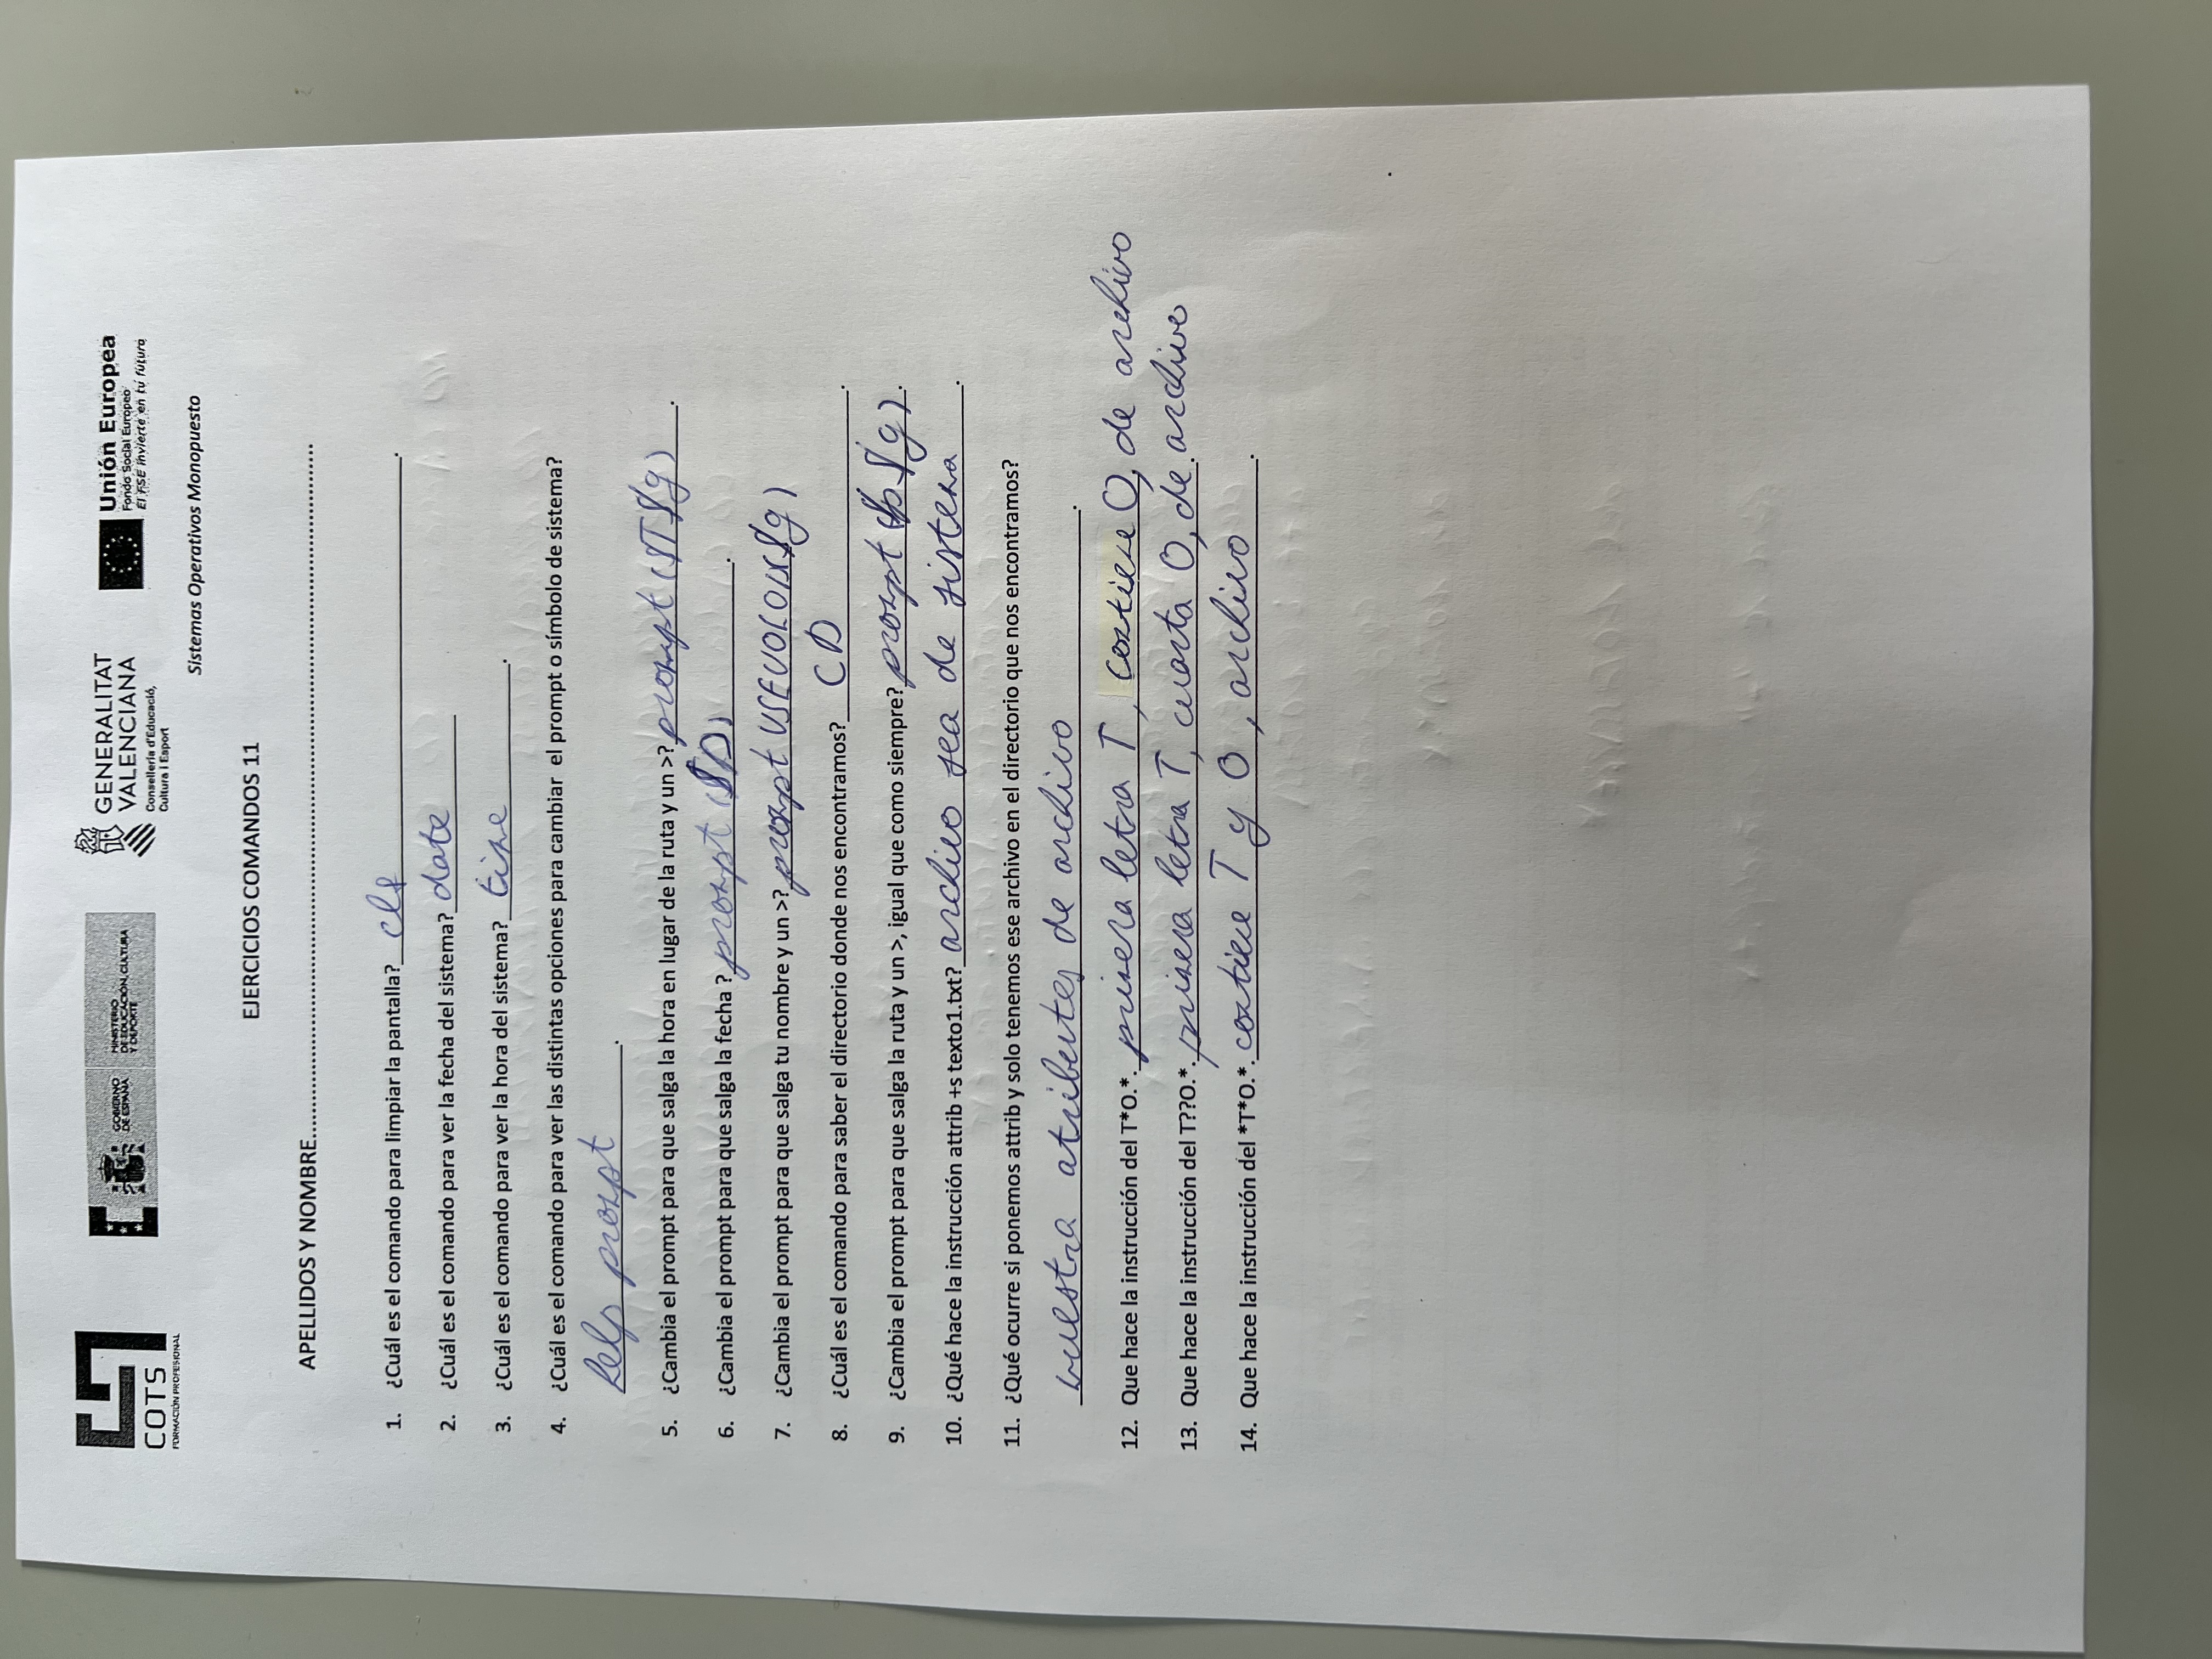 COTS
FORMACIÓN PROFESIONAL
GOBIERNO
DE ESPAÑA
MINISTERIO
DE EDUCACIÓN, CULTURA
Y DEPORTE
GENERALITAT
VALENCIANA
Conselleria d'Educació,
Cultura i Esport
Unión Europea
Fondo Social Europeo
El FSE invierte en tu futuro
Sistemas Operativos Monopuesto
EJERCICIOS COMANDOS 11
APELLIDOS Y NOMBRE
1. ¿Cuál es el comando para limpiar la pantalla? cls
2. ¿Cuál es el comando para ver la fecha del sistema? date
3. ¿Cuál es el comando para ver la hora del sistema? time
4. ¿Cuál es el comando para ver las distintas opciones para cambiar el prompt o símbolo de sistema?
help prompt
5. ¿Cambia el prompt para que salga la hora en lugar de la ruta y un >? prompt ($T$g)
6. ¿Cambia el prompt para que salga la fecha ? prompt ($D)
7. ¿Cambia el prompt para que salga tu nombre y un >? prompt
8. ¿Cuál es el comando para saber el directorio donde nos encontramos? CD
9. ¿Cambia el prompt para que salga la ruta y un >, igual que como siempre? prompt ($p$g)
10. ¿Qué hace la instrucción attrib +s texto1.txt? archivo sea de sistema
11. ¿Qué ocurre si ponemos attrib y solo tenemos ese archivo en el directorio que nos encontramos?
muestra atributes de archivo
12. Que hace la instrucción del T*O.*. primera letra T, contiene O, de archivo
13. Que hace la instrucción del T??O.*. primera letra T, cuarta O, de archivo
14. Que hace la instrucción del *T*O.*. contiene T y O, archivo